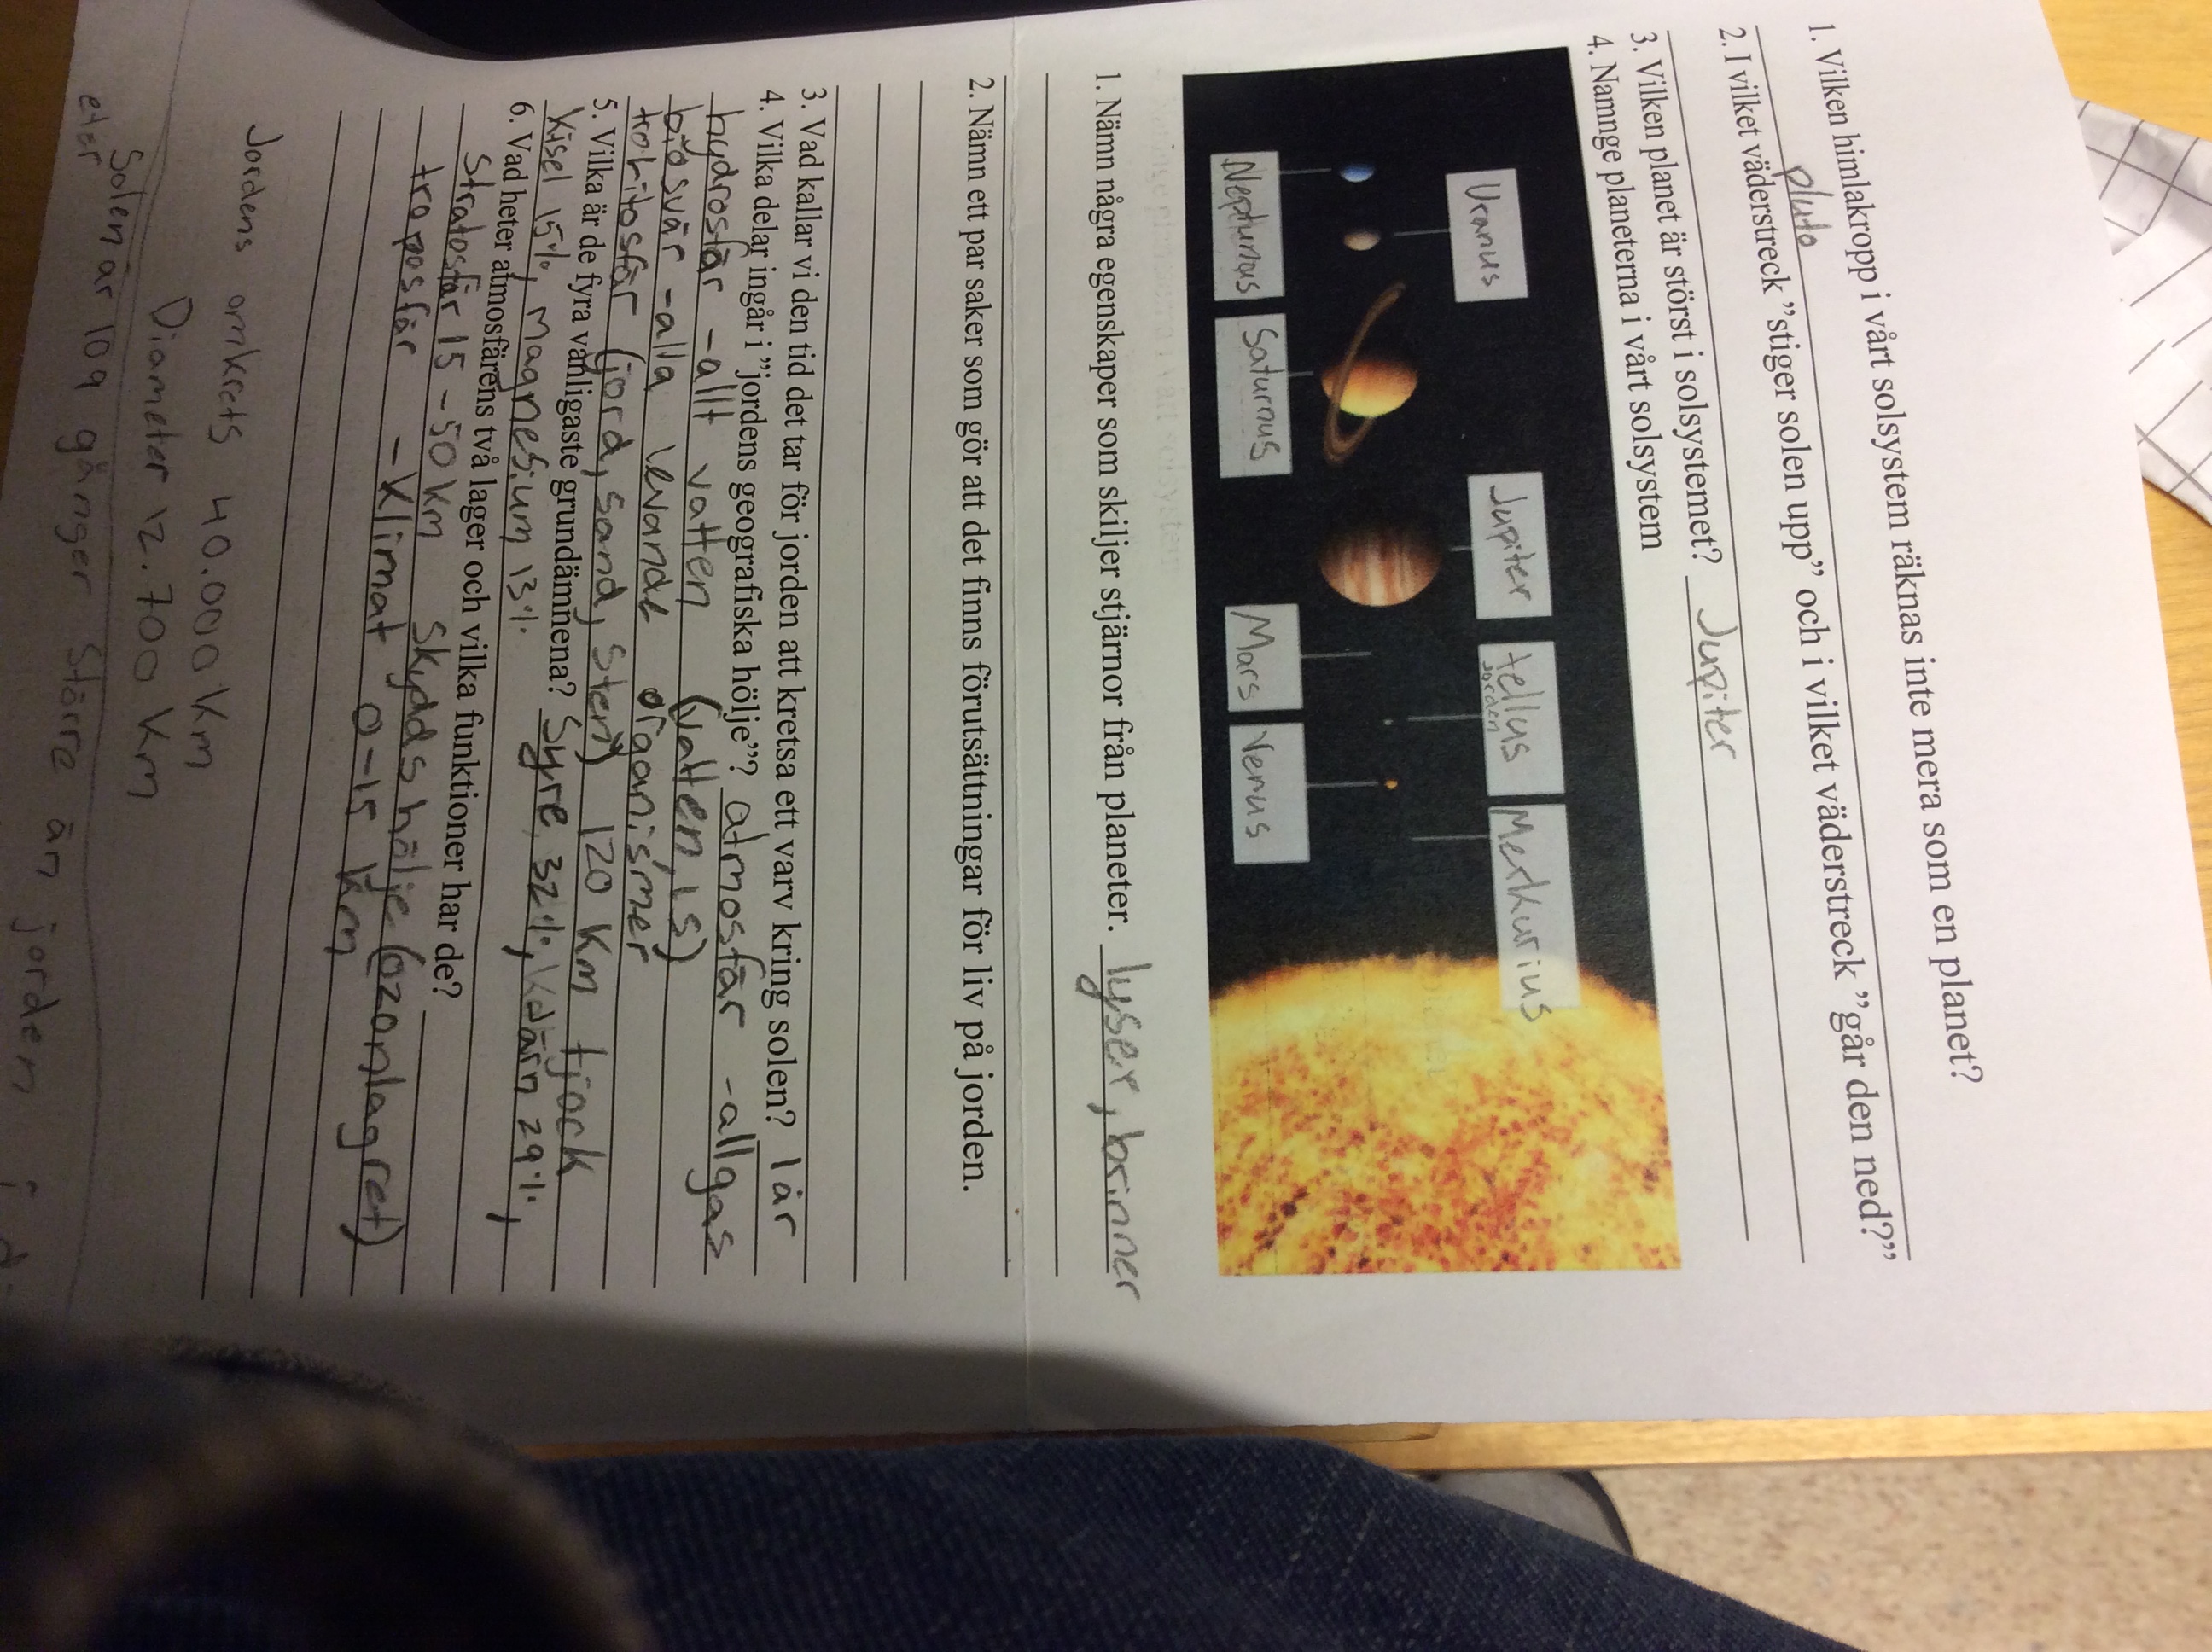 1. Vilken himlakropp i vårt solsystem räknas inte mera som en planet?
pluto
2. I vilket väderstreck ”stiger solen upp” och i vilket väderstreck ”går den ned?”
3. Vilken planet är störst i solsystemet? Jupiter
4. Namnge planeterna i vårt solsystem
Uranus Jupiter tellus Merkurius
jorden
Neptunus Saturnus Mars Venus
1. Nämn några egenskaper som skiljer stjärnor från planeter. lyser, brinner
2. Nämn ett par saker som gör att det finns förutsättningar för liv på jorden.
3. Vad kallar vi den tid det tar för jorden att kretsa ett varv kring solen? 1 år
4. Vilka delar ingår i ”jordens geografiska hölje”? atmosfär - all gas
hydrosfär - allt vatten (vatten, is)
biosvär - alla levande organismer
(jord, sand, sten) 120 km tjock
5. Vilka är de fyra vanligaste grundämnena? Syre 32%, 29%,
Kisel 15%, magnesium 13%
6. Vad heter atmosfärens två lager och vilka funktioner har de?
Stratosfär 15-50 km skydds hölje (ozonlagret)
troposfär - klimat 0-15 km
Jordens omkrets 40.000 km
Diameter 12.700 km
Solen är 109 gånger större än jorden i
eter